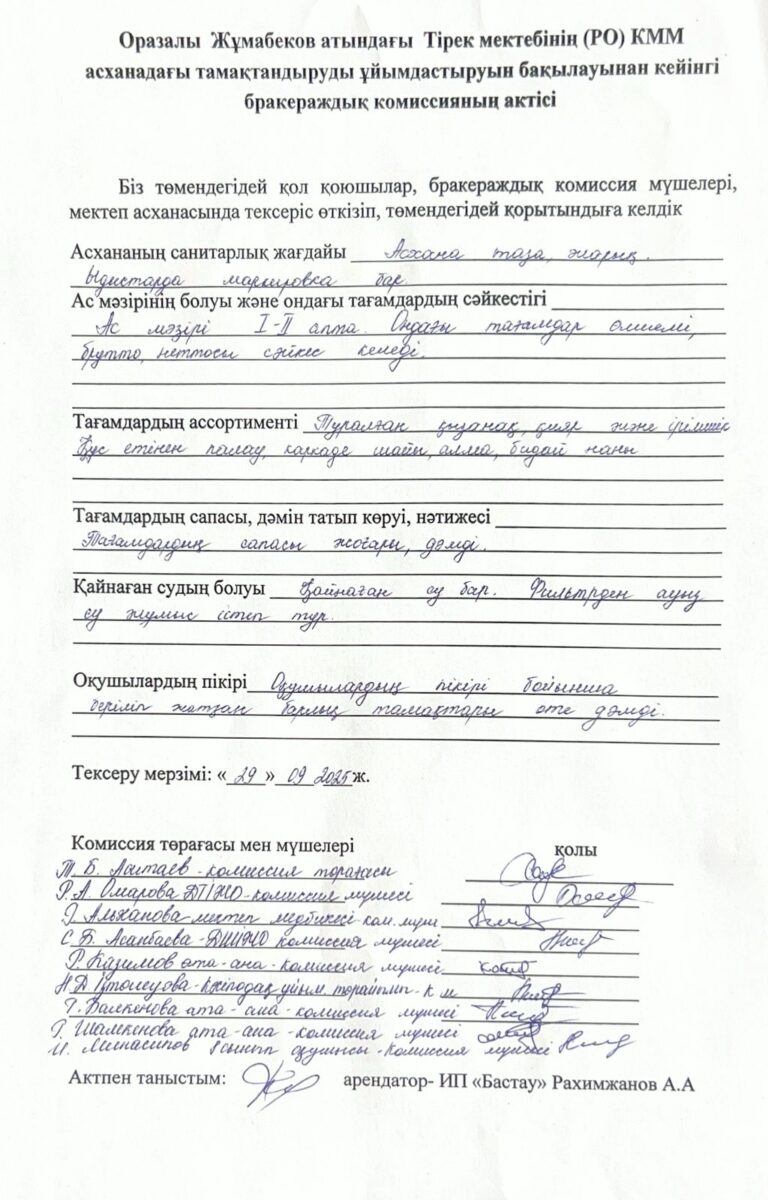 Оразалы Жұмабеков атындағы Тірек мектебінің (РО) КММ
асханадағы тамақтандыруды ұйымдастыруын бақылауынан кейінгі
бракераждық комиссияның актісі
Біз төмендегідей қол қоюшылар, бракераждық комиссия мүшелері,
мектеп асханасында тексеріс өткізіп, төмендегідей қорытындыға келдік
Асхананың санитарлық жағдайы Асхана таза, жарық.
Ыдыстарда маркировка бар.
Ас мәзірінің болуы және ондағы тағамдардың сәйкестігі
Ас мәзірі I-II апта. Ондағы тағамдар өлшемі,
брутто, неттосы сәйкес келеді.
Тағамдардың ассортименті Туралған қызанақ, қияр және ірімшік
Құс етінен палау, каркаде шайы, алма, бидай наны
Тағамдардың сапасы, дәмін татып көруі, нәтижесі
Тағамдардың сапасы жоғары, дәмді.
Қайнаған судың болуы Қайнаған су бар. Фильтрден ауыз
су жұмыс істеп тұр.
Оқушылардың пікірі Оқушылардың пікірі бойынша
беріліп жатқан барлық тамақтары өте дәмді.
Тексеру мерзімі: «29» 09 2025ж.
Комиссия төрағасы мен мүшелері қолы
Т. Б. - комиссия төрағасы
Р. А. Омарова ДТІЖО - комиссия мүшесі
Г. Альханова мектеп медбикесі - ком. мүше
С. Б. Асанбаева - комиссия мүшесі
Р. Казимов ата - ана - комиссия мүшесі
Н. Д. кәсіподақ ұйым. төрайымы - к м
Г. ата - ана - комиссия мүшесі
Г. Шамкенова ата - ана - комиссия мүшесі
И. 8 сынып оқушысы - комиссия мүшесі
Актпен таныстым: арендатор- ИП «Бастау» Рахимжанов А.А